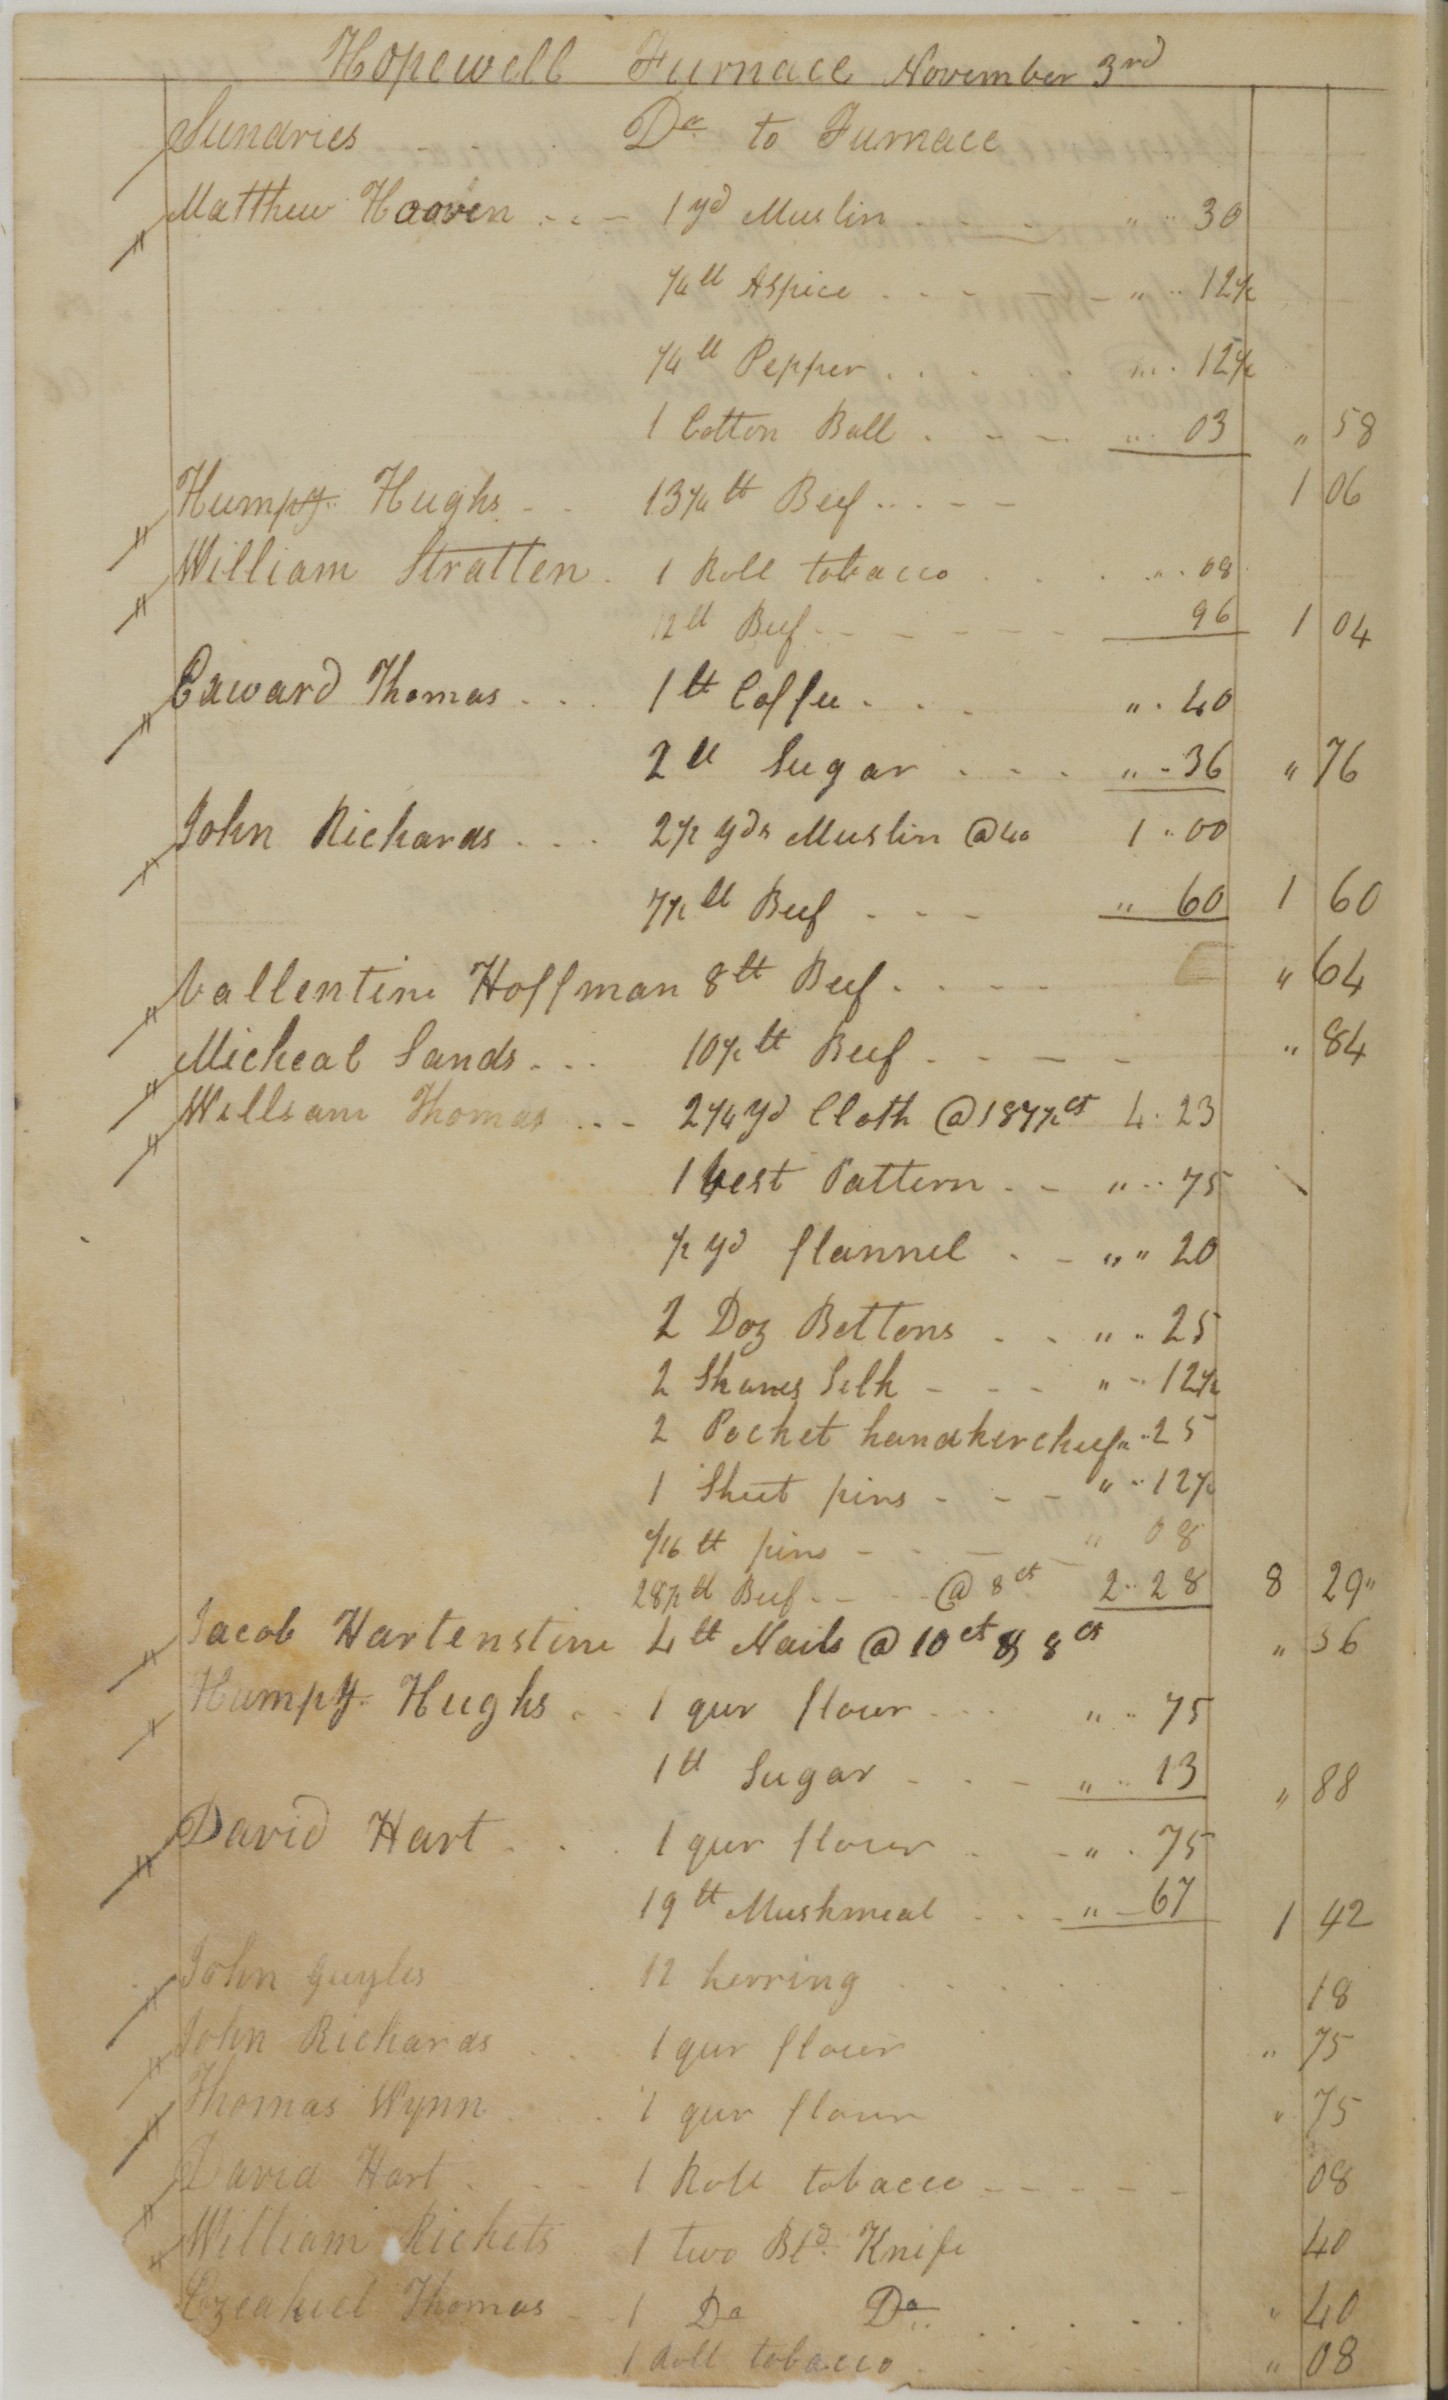 Hopewell Furnace November 3rd
Sundries . . . Do to Furnace
Matthew Hooven . . - 1 yd Muslin . . . " " 30
1/4 lb Aspice . . - - - " " 12 1/2
1/4 lb Pepper . . . . " " 12 1/2
1 Cotton Ball . - - " 03 " 58
Humpy. Hughs - . 13 1/4 lb Beef . . - - 1 06
William Stratten . 1 Roll tobacco . . . " . 08
12 lb Beef - - - - - 96 1 04
Edward Thomas . . . 1 lb Coffee . . . " . 40
2 lb Sugar . . . " - 36 " 76
John Richards . . . 2 1/2 yds Muslin @ 40 1 " 00
7 1/2 lb Beef . - - " 60 1 60
Vallentine Hoffman 8 lb Beef . . . . " 64
Micheal Sands . . . 10 1/2 lb Beef . - - - " 84
William Thomas . . - 2 1/4 yd Cloth @ 187 1/2 cts 4 . 23
1 Vest Pattern . - " " 75
1/2 yd flannel . - " " 20
2 Doz Bottons . . " " 25
2 Skanes Silk - - - " " 12 1/2
2 Pocket handkercheefs " " 25
1 Sheet pins - - - " " 12 1/2
1/16 lb pins - - - " 08
28 1/2 lb Beef . - . @ 8 ct 2 " 28 8 29 "
Jacob Hartenstine 4 lb Nails @ 10 ct & 8 ct " 36
Humpy. Hughs . . 1 qur flour . . . " " 75
1 lb Sugar - . - " " 13 " 88
David Hart . . . 1 qur flour . - " . 75
19 lb Mushmeal . . . " - 67 1 42
John Guyles . 12 herring . . . . 18
John Richards . . . 1 qur flour " 75
Thomas Wynn . . 1 qur flour " 75
David Hart . . - 1 Roll tobacco - - - - - 08
William Rickets 1 two Bld. Knife 40
Ezeakiel Thomas - - 1 Do Do . . . . . " 40
1 Roll tobacco . . . . " 08